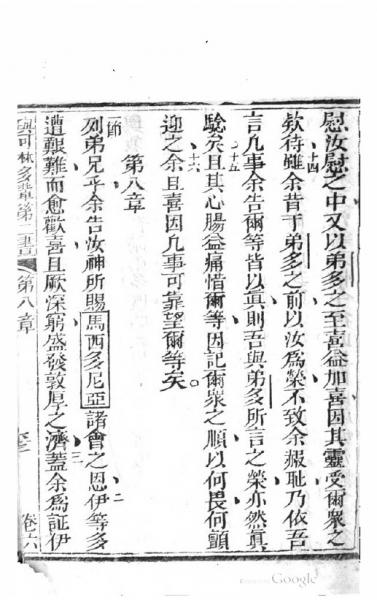 慰汝慰之中又以弟多之至喜益加喜因其靈受爾衆之
十四
欵待雖余昔于弟多之前以汝爲榮不致余赧耻乃依吾
言凡事余告爾等皆以真則吾與弟多所言之榮亦然真
十五
驗矣且其心腸益痛惜爾等因記爾衆之順以何畏何顫
十六
迎之余且喜因凡事可靠望爾等矣。
第八章
一節
列弟兄乎余告汝神所賜馬西多尼亞諸會之恩伊等多
二
遭艱難而愈歡喜且厥深窮盛發敦厚之濟蓋余爲証伊
三
與可林多輩第二書
第八章
卷六
Google